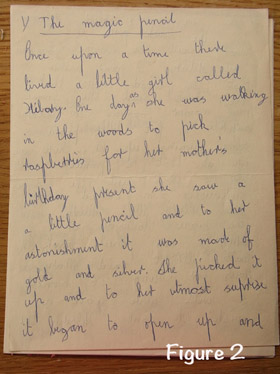 1/ The magic pencil
Once upon a time there
lived a little girl called
Hilary. One day as she was walking
in the woods to pick
raspberris for her mother's
birthday present she saw a
a little pencil and to her
astonishment it was made of
gold and silver. She picked it
up and to her utmost suprise
it began to open up and
Figure 2